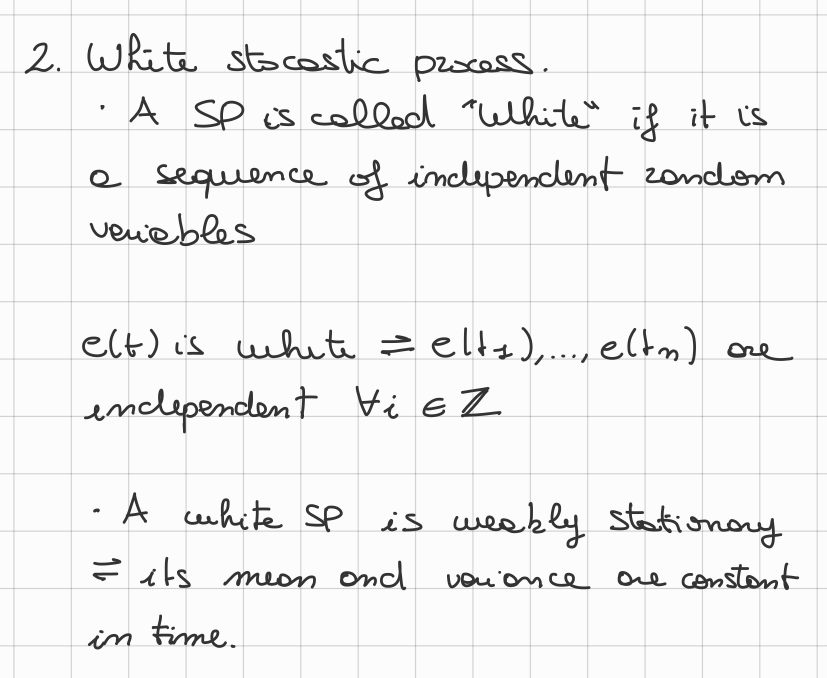 2. White stocastic process.
· A SP is called "White" if it is
a sequence of independent random
variables
e(t) is white ⇌ e(t₁),..., e(tₙ) are
independent ∀i ∈ ℤ
· A white SP is weakly stationary
⇌ its mean and variance are constant
in time.